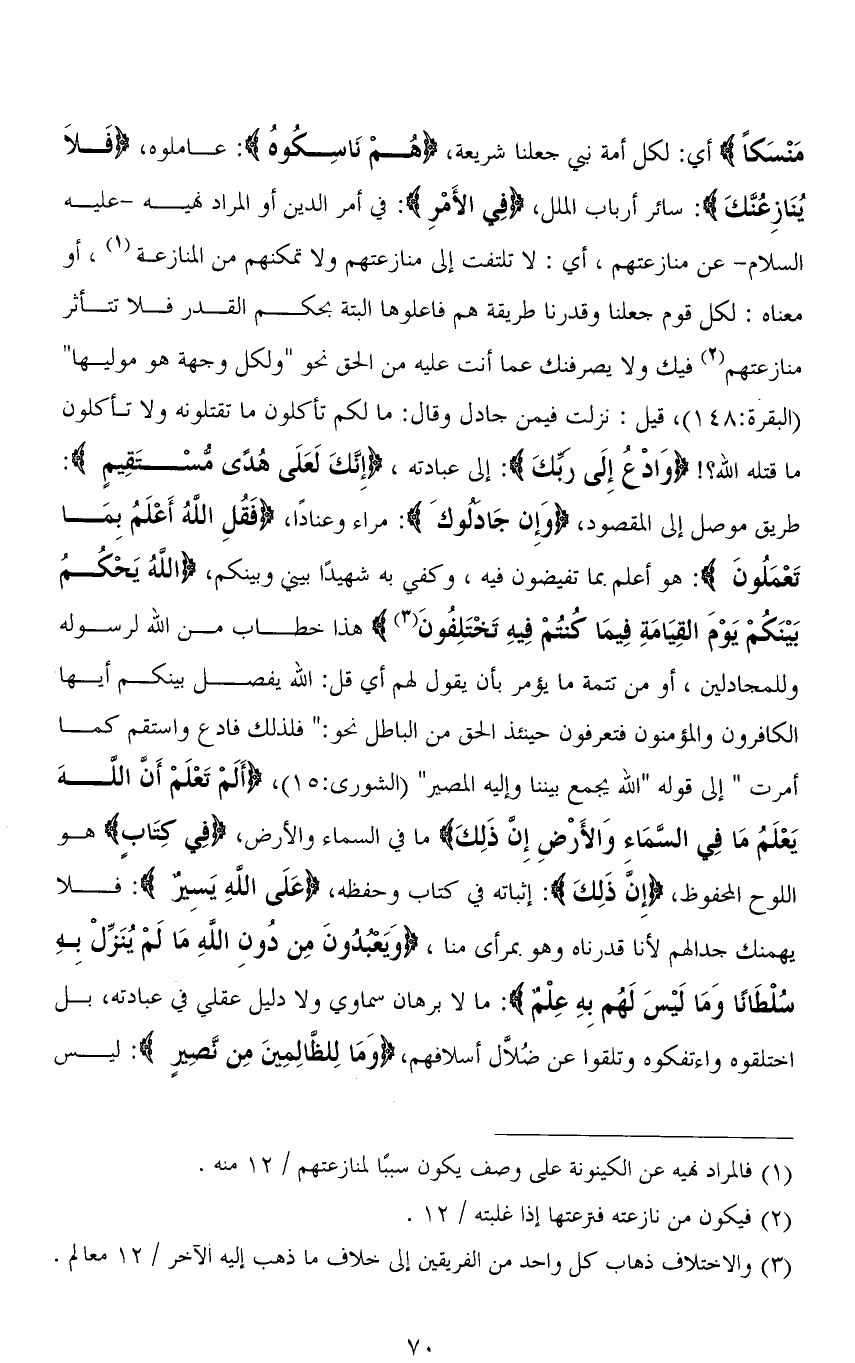 مَنْسَكاً﴾ أي: لكل أمة نبي جعلنا شريعة، ﴿هُمْ نَاسِكُوهُ﴾: عاملوه، ﴿فَلاَ
يُنَازِعُنَّكَ﴾: سائر أرباب الملل، ﴿فِي الأَمْرِ﴾: في أمر الدين أو المراد نهيه -عليه
السلام- عن منازعتهم ، أي : لا تلتفت إلى منازعتهم ولا تمكنهم من المنازعة (١) ، أو
معناه : لكل قوم جعلنا وقدرنا طريقة هم فاعلوها البتة بحكم القدر فلا تتأثر
منازعتهم(٢) فيك ولا يصرفنك عما أنت عليه من الحق نحو "ولكل وجهة هو موليها"
(البقرة:١٤٨)، قيل : نزلت فيمن جادل وقال: ما لكم تأكلون ما تقتلونه ولا تأكلون
ما قتله الله؟! ﴿وَادْعُ إِلَى رَبِّكَ﴾: إلى عبادته ، ﴿إِنَّكَ لَعَلَى هُدًى مُّسْتَقِيمٍ ﴾:
طريق موصل إلى المقصود، ﴿وَإِن جَادَلُوكَ ﴾: مراء وعنادًا، ﴿فَقُلِ اللَّهُ أَعْلَمُ بِمَا
تَعْمَلُونَ ﴾: هو أعلم بما تفيضون فيه ، وكفي به شهيدًا بيني وبينكم، ﴿اللَّهُ يَحْكُمُ
بَيْنَكُمْ يَوْمَ القِيَامَةِ فِيمَا كُنتُمْ فِيهِ تَخْتَلِفُونَ(٣)﴾ هذا خطاب من الله لرسوله
وللمجادلين ، أو من تتمة ما يؤمر بأن يقول لهم أي قل: الله يفصل بينكم أيها
الكافرون والمؤمنون فتعرفون حينئذ الحق من الباطل نحو:" فلذلك فادع واستقم كما
أمرت " إلى قوله "الله يجمع بيننا وإليه المصير" (الشورى:١٥)، ﴿أَلَمْ تَعْلَمْ أَنَّ اللَّهَ
يَعْلَمُ مَا فِي السَّمَاءِ وَالأَرْضِ إِنَّ ذَلِكَ﴾ ما في السماء والأرض، ﴿فِي كِتَابٍ﴾ هو
اللوح المحفوظ، ﴿إِنَّ ذَلِكَ﴾: إثباته في كتاب وحفظه، ﴿عَلَى اللَّهِ يَسِيرٌ ﴾: فلا
يهمنك جدالهم لأنا قدرناه وهو بمرأى منا ، ﴿وَيَعْبُدُونَ مِن دُونِ اللَّهِ مَا لَمْ يُنَزِّلْ بِهِ
سُلْطَانًا وَمَا لَيْسَ لَهُم بِهِ عِلْمٌ﴾: ما لا برهان سماوي ولا دليل عقلي في عبادته، بل
اختلقوه واءتفكوه وتلقوا عن ضُلاَّل أسلافهم، ﴿وَمَا لِلظَّالِمِينَ مِن نَّصِيرٍ ﴾: ليس
(١) فالمراد نهيه عن الكينونة على وصف يكون سببًا لمنازعتهم / ١٢ منه .
(٢) فيكون من نازعته فنزعتها إذا غلبته / ١٢ .
(٣) والاختلاف ذهاب كل واحد من الفريقين إلى خلاف ما ذهب إليه الآخر / ١٢ معالم .
٧٠